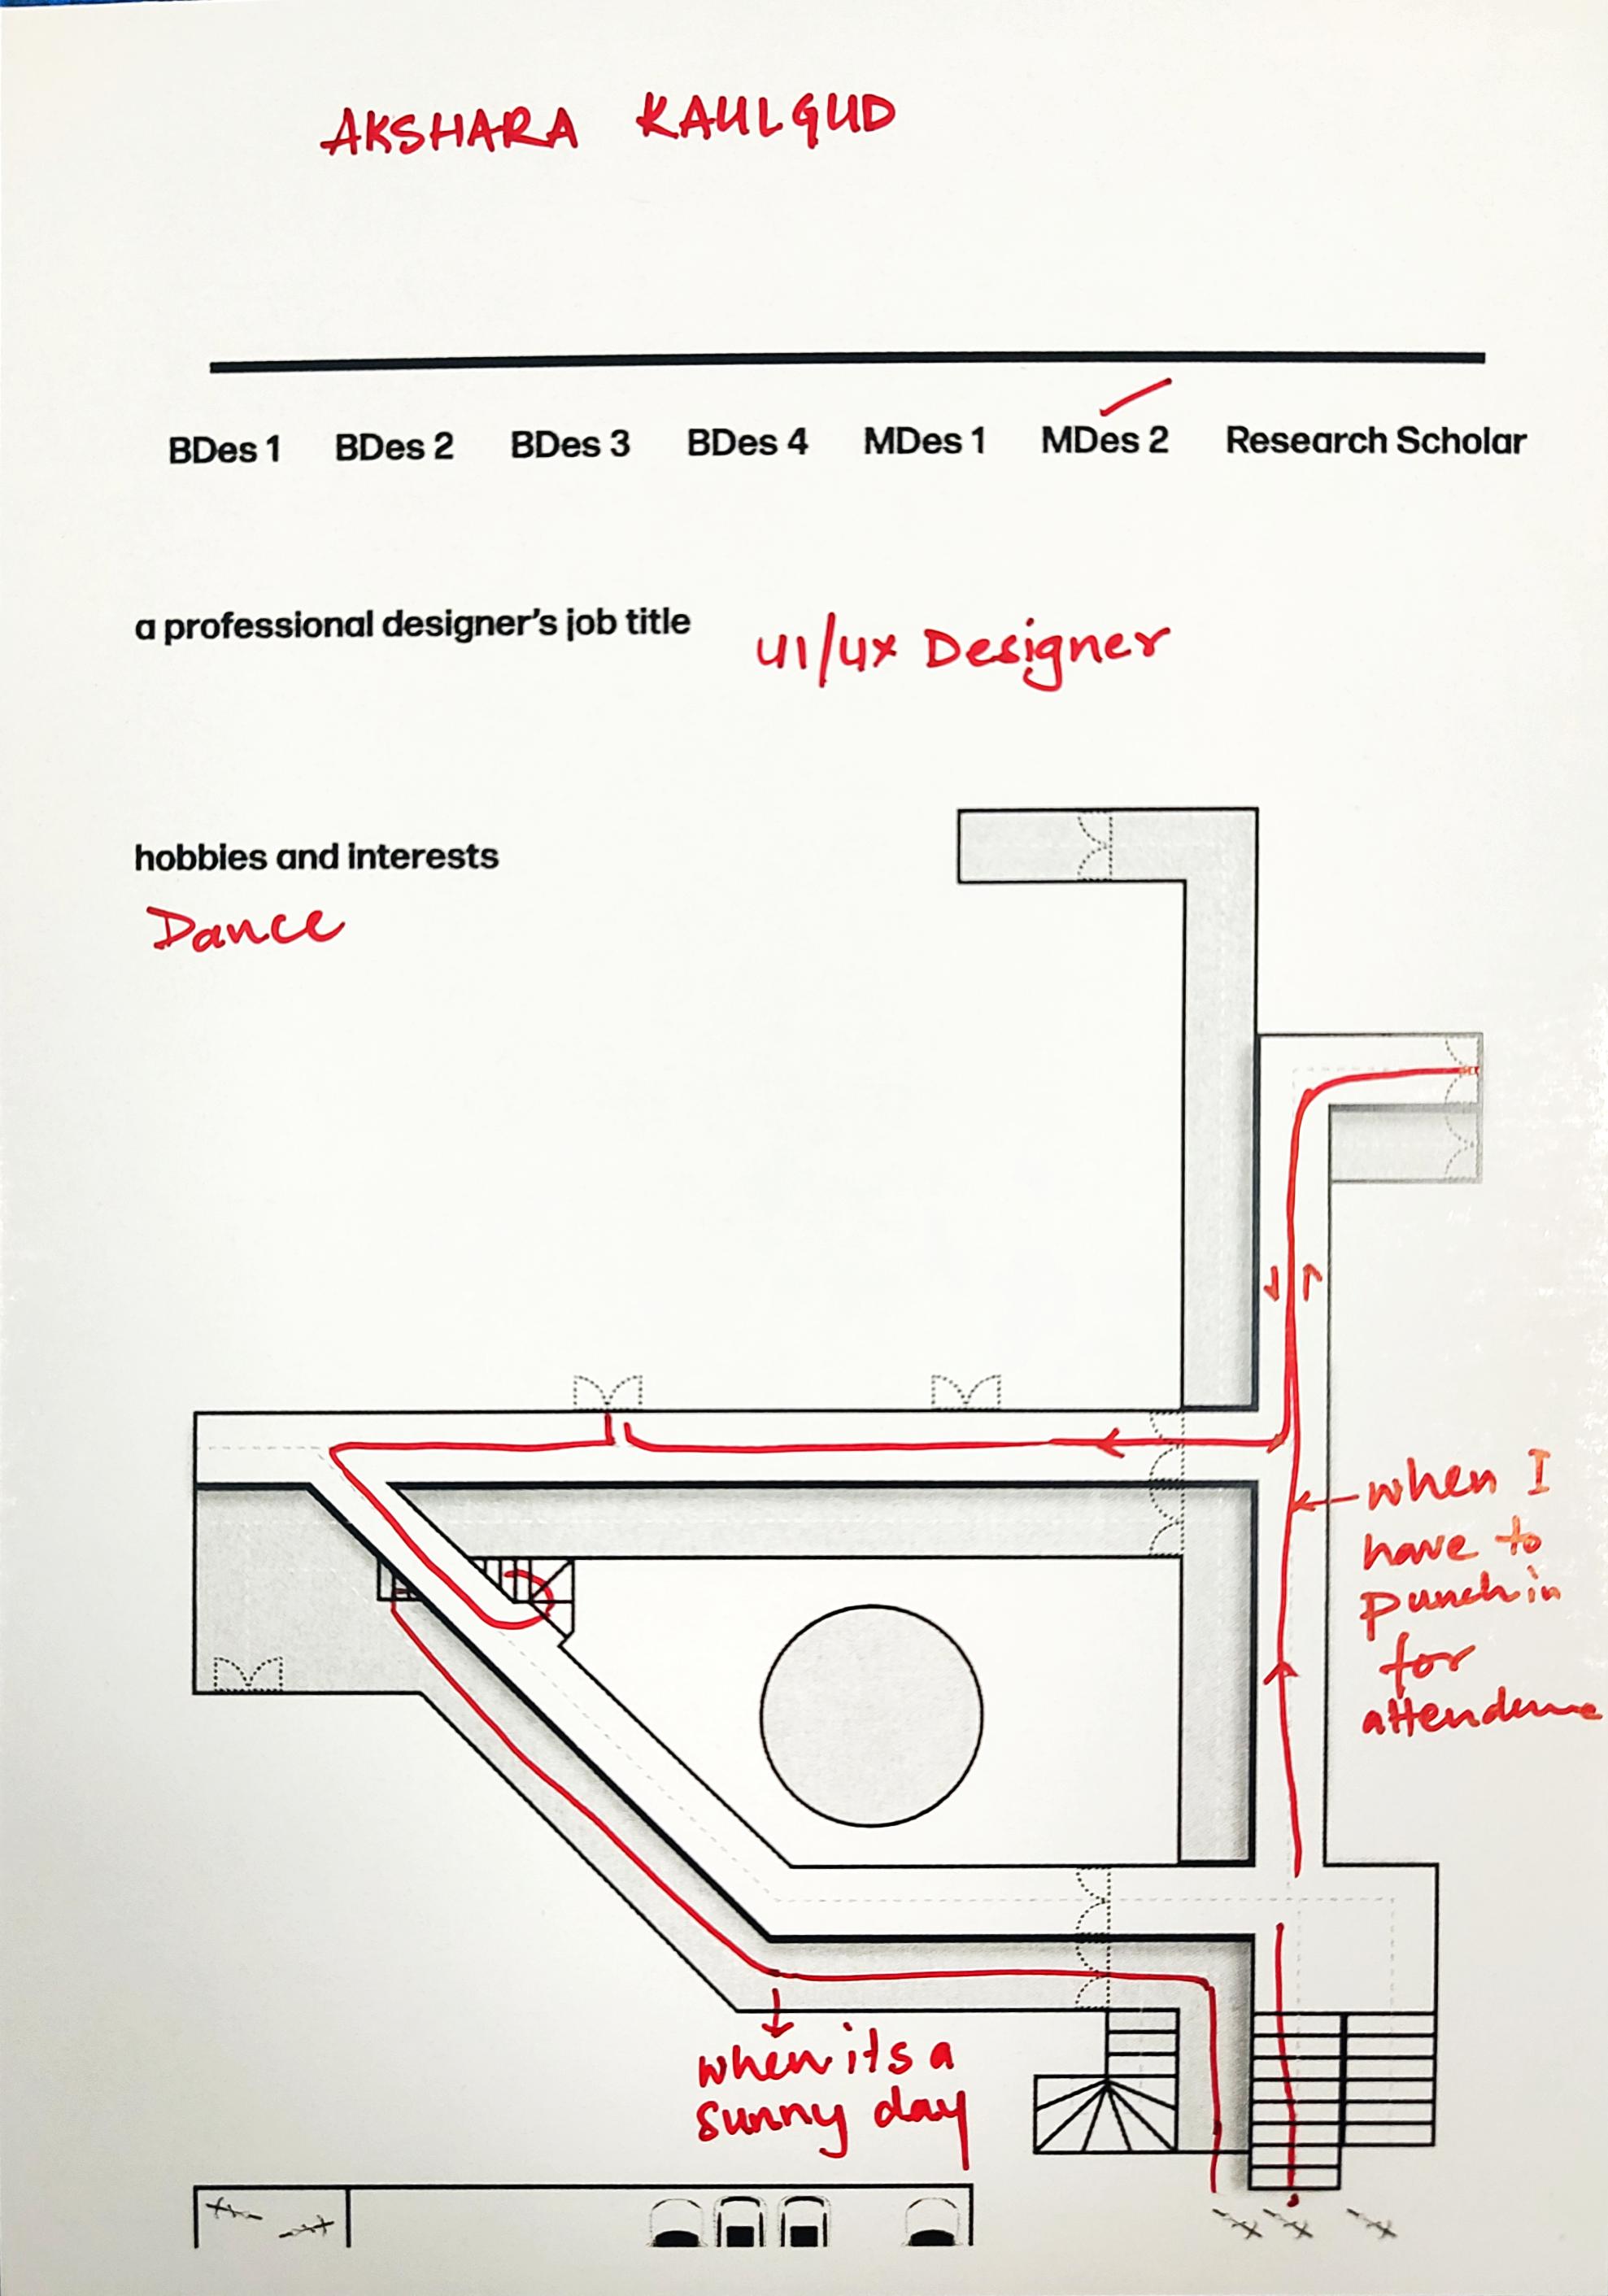 AKSHARA KAULGUD
BDes 1 BDes 2 BDes 3 BDes 4 MDes 1 MDes 2 Research Scholar
a professional designer's job title
UI/UX Designer
hobbies and interests
Dance
when I
have to
punch in
for
attendence
when its a
sunny day